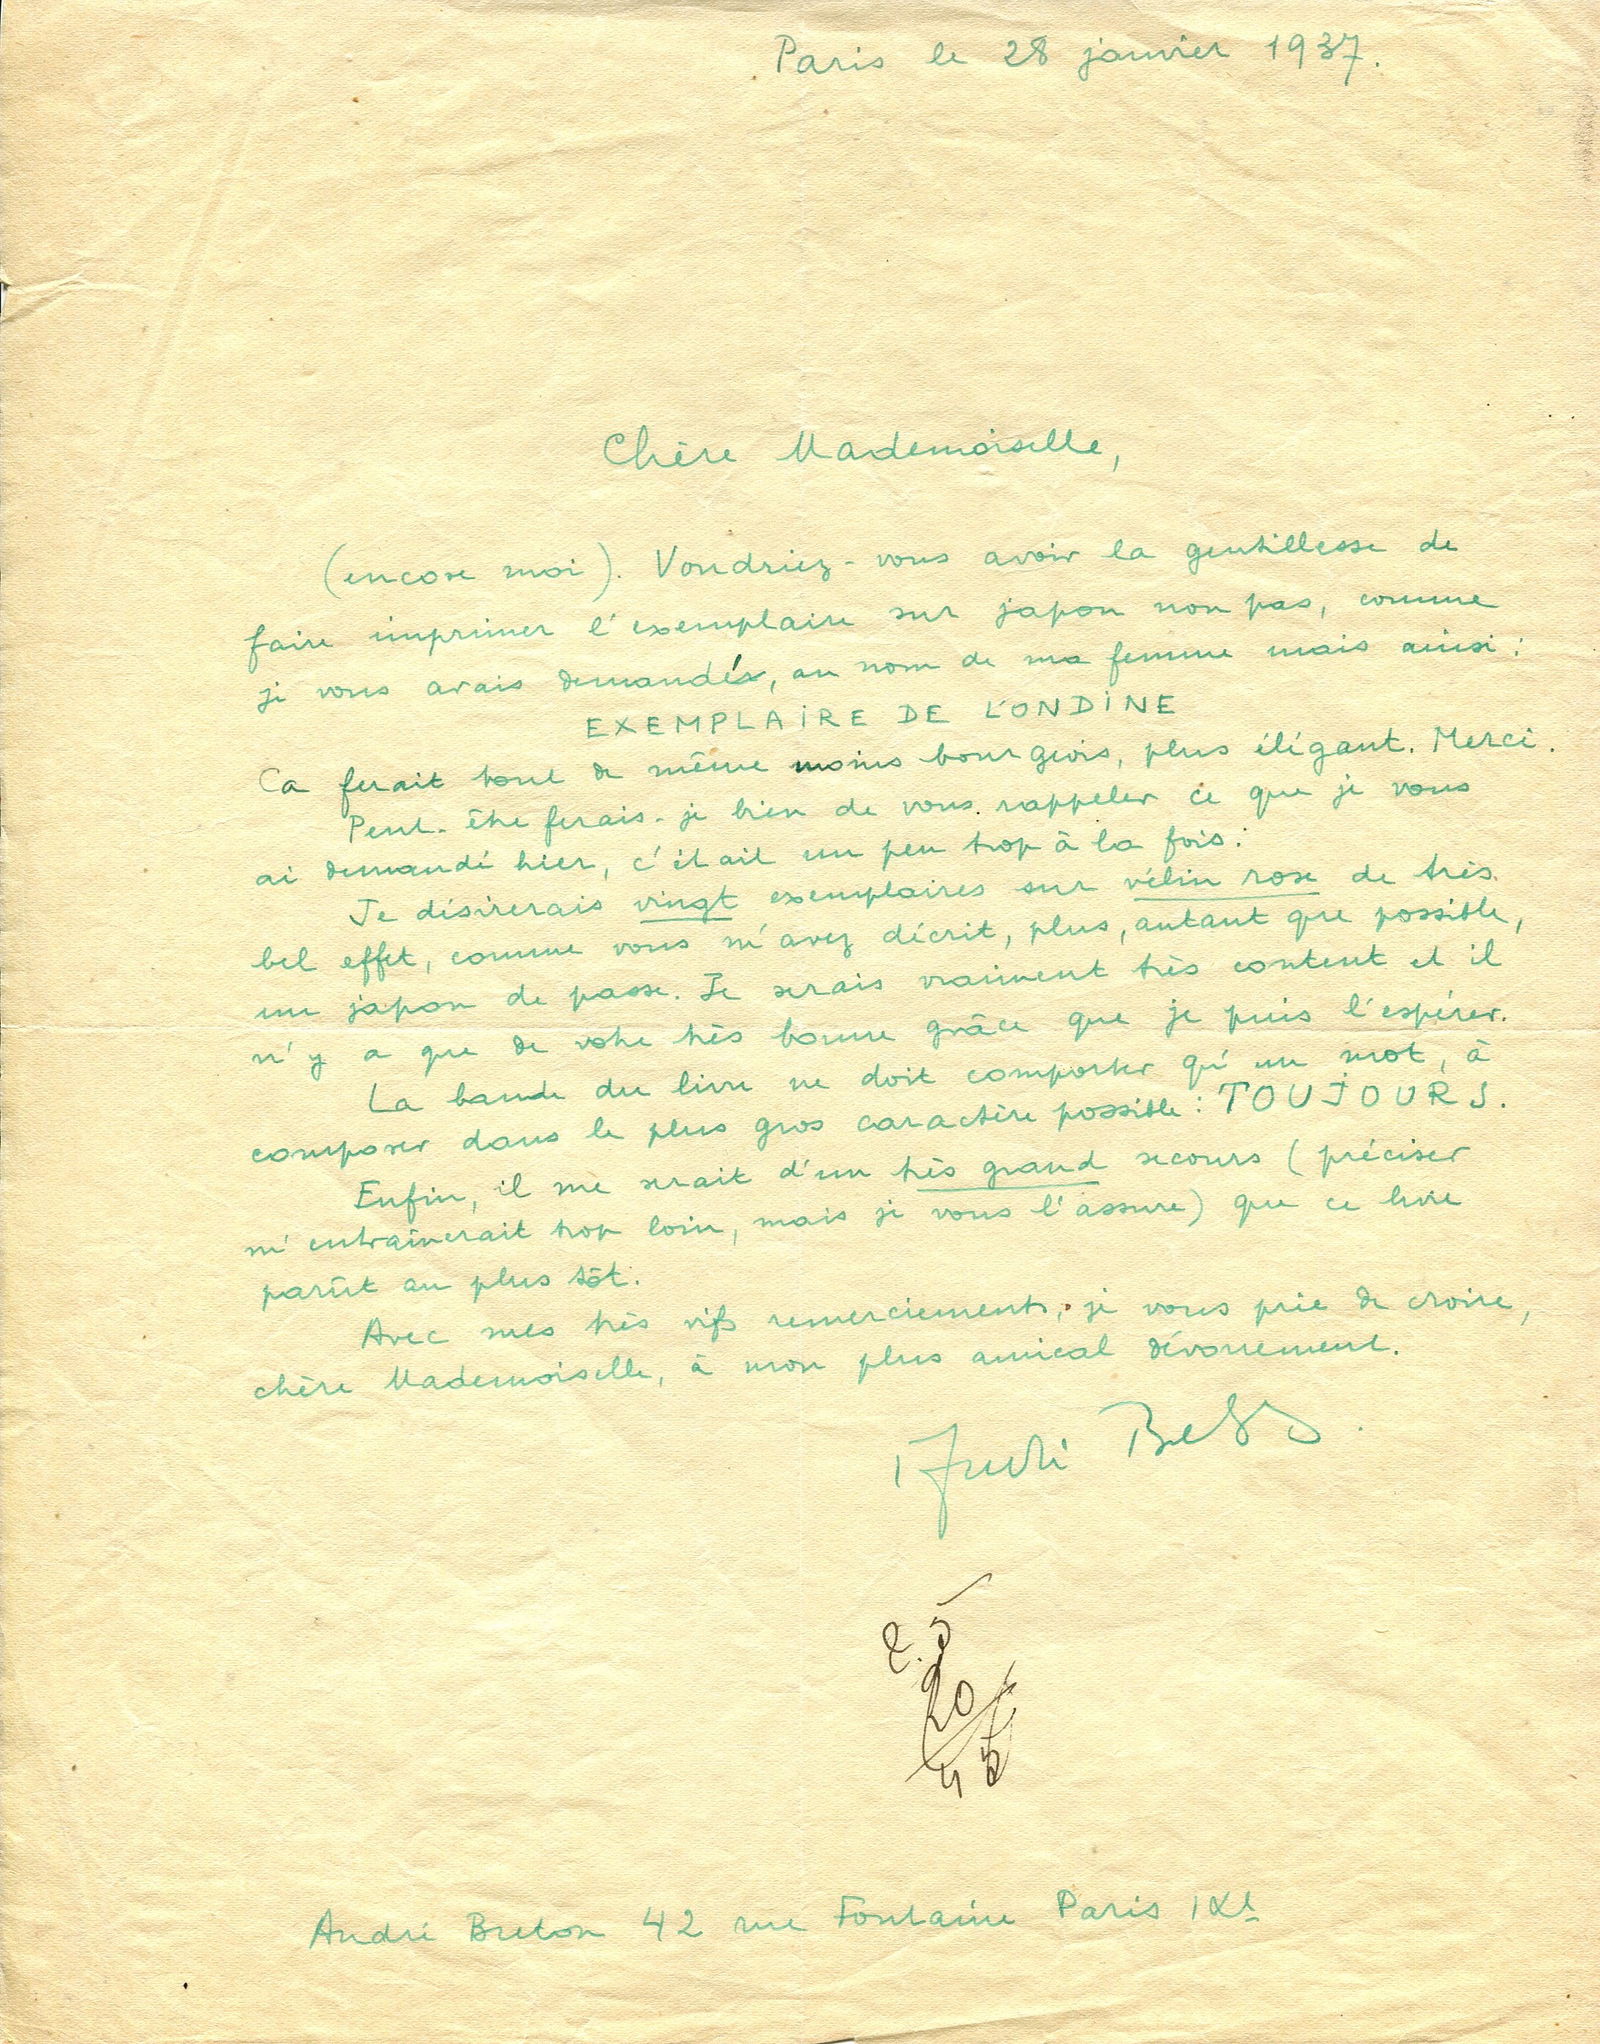 Paris le 28 janvier 1937.
Chère Mademoiselle,
(encore moi). Voudriez-vous avoir la gentillesse de
faire imprimer l'exemplaire sur japon non pas, comme
je vous avais demandé, au nom de ma femme mais ainsi :
EXEMPLAIRE DE L'ONDINE
Ca ferait tout de même moins bourgeois, plus élégant. Merci.
Peut-être ferais-je bien de vous rappeler ce que je vous
ai demandé hier, c'était un peu trop à la fois :
Je désirerais vingt exemplaires sur vélin rose de très
bel effet, comme vous m'avez décrit, plus, autant que possible,
un japon de passe. Je serais vraiment très content et il
n'y a que de votre très bonne grâce que je puis l'espérer.
La bande du livre ne doit comporter qu'un mot, à
composer dans le plus gros caractère possible : TOUJOURS.
Enfin, il me serait d'un très grand secours (préciser
m'entraînerait trop loin, mais je vous l'assure) que ce livre
parût au plus tôt.
Avec mes très vifs remerciements, je vous prie de croire,
chère Mademoiselle, à mon plus amical dévouement.
André Breton.
20
45
André Breton 42 rue Fontaine Paris IXe